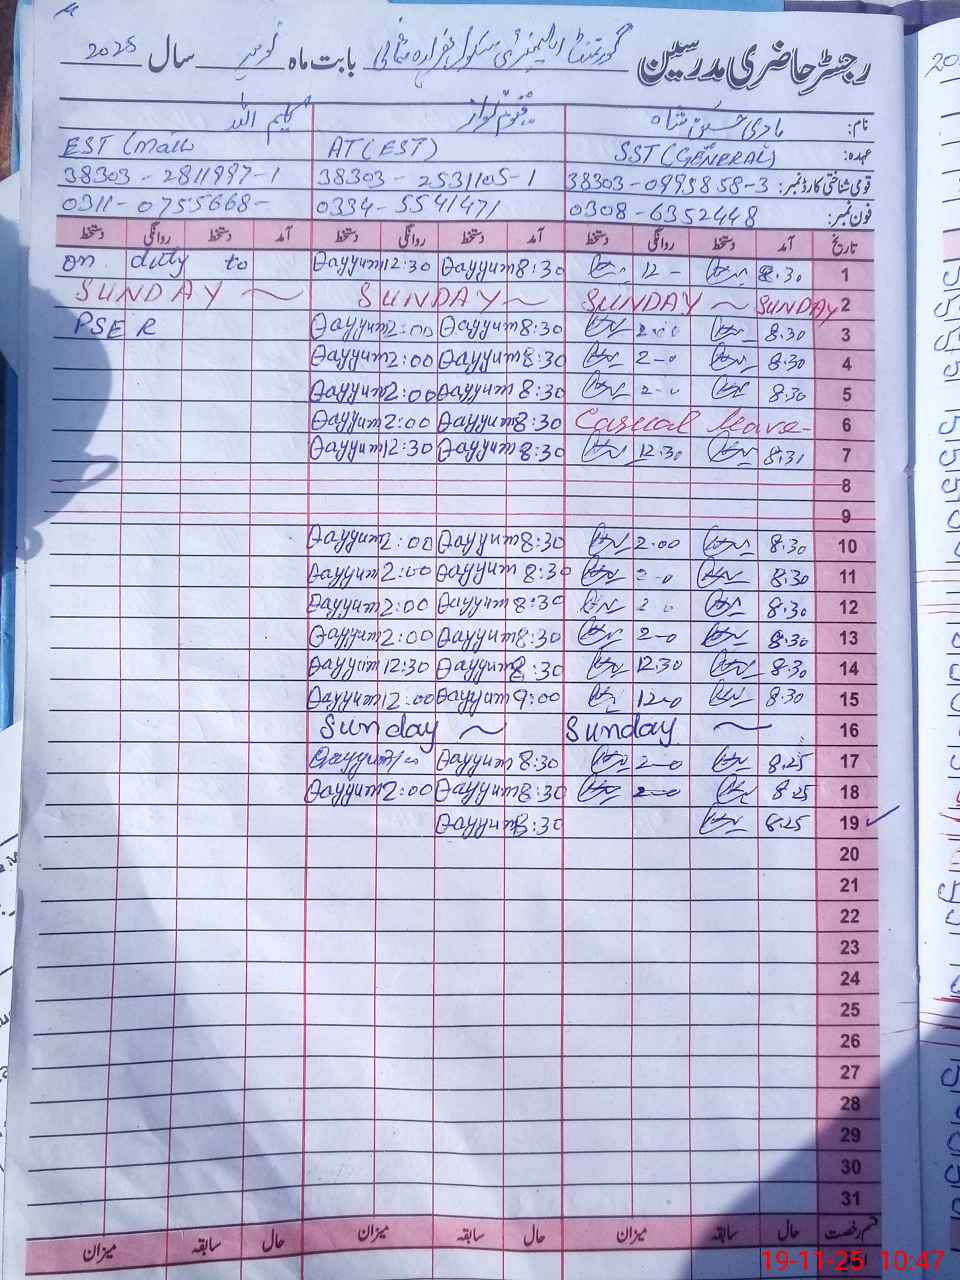 رجسٹر حاضری مدرسین گورنمنٹ ایلیمنٹری سکول بابت ماہ نومبر سال 2025
نام: ہادی حسین شاہ کلیم اللہ
عہدہ: SST (GENERAL) AT (EST) EST (Male)
قومی شناختی کارڈ نمبر: 38303-0995858-3 38303-2531105-1 38303-2811997-1
فون نمبر: 0308-6352448 0334-5541471 0311-0755668-
تاریخ آمد دستخط روانگی دستخط آمد دستخط روانگی دستخط آمد دستخط روانگی دستخط
1 8.30 12- 8:30 Qayyum 12:30 Qayyum on duty to
2 SUNDAY SUNDAY ~ SUNDAY ~ SUNDAY ~
3 8.30 2.00 8:30 Qayyum 2:00 Qayyum PSER
4 8.30 2-0 8:30 Qayyum 2:00 Qayyum
5 8.30 2-0 8:30 Qayyum 2:00 Qayyum
6 Casual leave- 8:30 Qayyum 2:00 Qayyum
7 8.31 12.30 8:30 Qayyum 12:30 Qayyum
8
9
10 8.30 2.00 8:30 Qayyum 2:00 Qayyum
11 8.30 2-0 8:30 Qayyum 2:00 Qayyum
12 8.30 2.0 8:30 Qayyum 2:00 Qayyum
13 8.30 2-0 8:30 Qayyum 2:00 Qayyum
14 8.30 12.30 8:30 Qayyum 12:30 Qayyum
15 8.30 12-0 9:00 Qayyum 12:00 Qayyum
16 Sunday ~ Sunday ~
17 8.25 2-0 8:30 Qayyum Qayyum
18 8.25 2-0 8:30 Qayyum 2:00 Qayyum
19 8.25 8:30 Qayyum
20
21
22
23
24
25
26
27
28
29
30
31
قسم رخصت حال سابقہ میزان حال سابقہ میزان حال سابقہ میزان
19-11-25 10:47